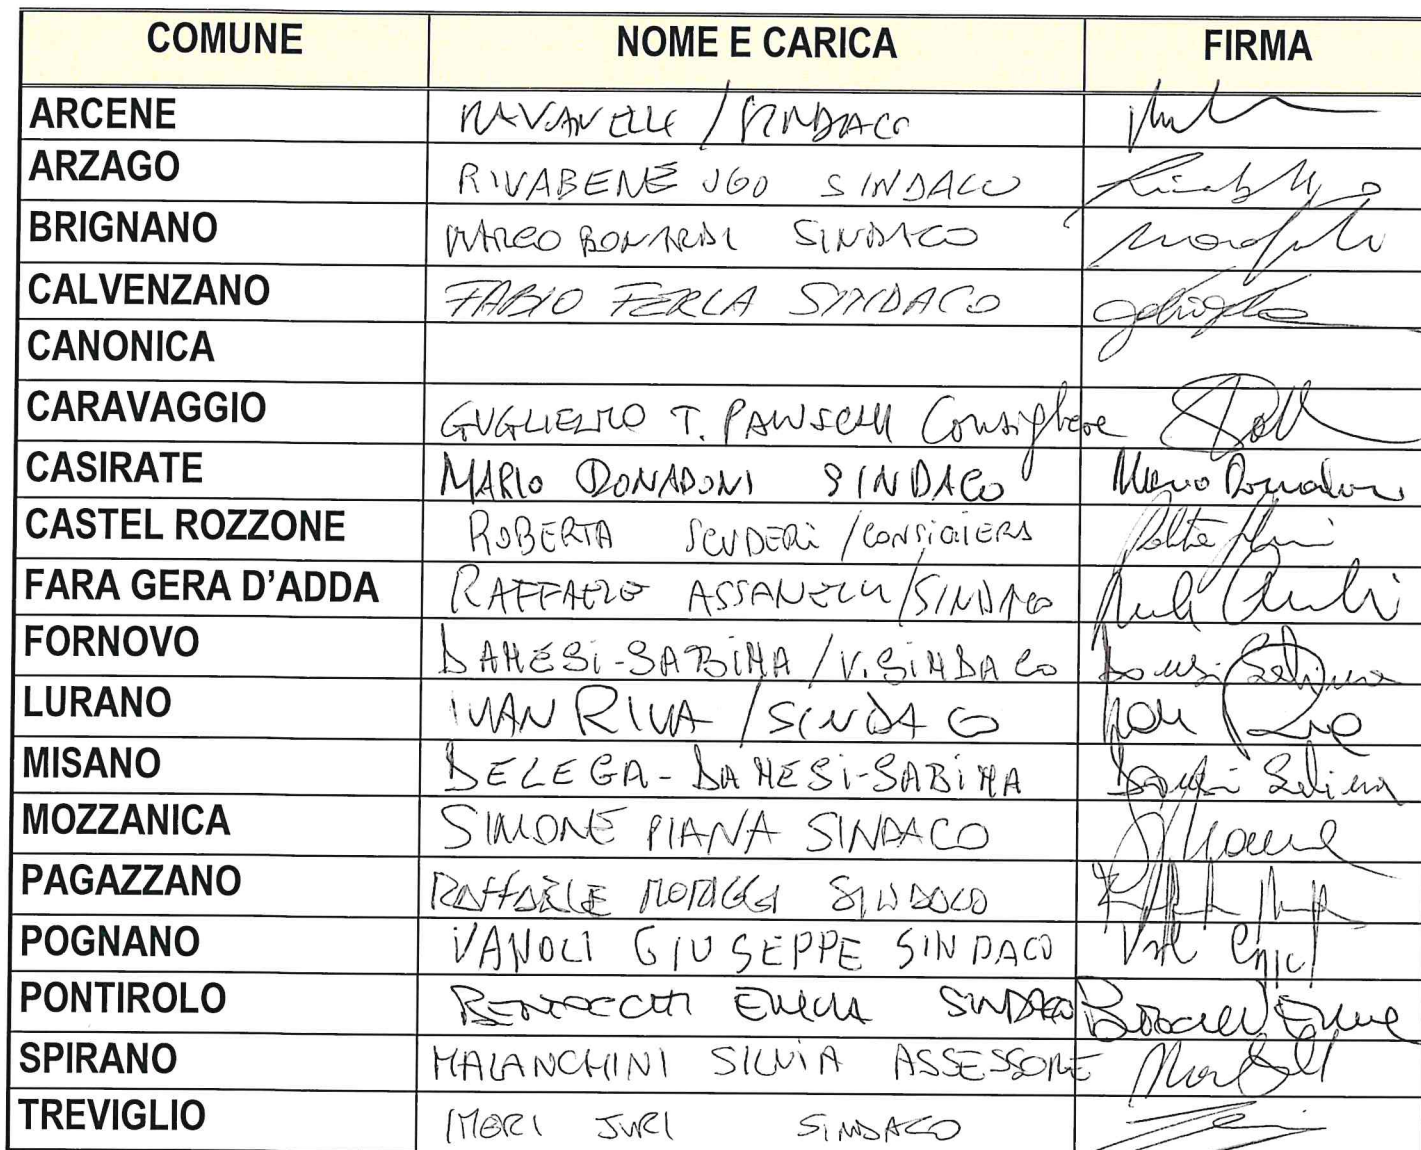 COMUNE NOME E CARICA FIRMA
ARCENE RAVANELLI / SINDACO
ARZAGO RIVABENE UGO SINDACO
BRIGNANO MARCO BONARDI SINDACO
CALVENZANO FABIO FERLA SINDACO
CANONICA
CARAVAGGIO GUGLIELMO T. Consigliere
CASIRATE MARIO DONADONI SINDACO Mario Donadoni
CASTEL ROZZONE ROBERTA SCUDERI / CONSIGLIERA
FARA GERA D'ADDA RAFFAELE ASSANELLI / SINDACO
FORNOVO DANESI-SABINA / V. SINDACO Danesi Sabina
LURANO IVAN RIVA / SINDACO
MISANO DELEGA - DANESI-SABINA Danesi Sabina
MOZZANICA SIMONE PIANA SINDACO
PAGAZZANO RAFFAELE MORIGGI SINDACO
POGNANO VANOLI GIUSEPPE SINDACO
PONTIROLO SINDACO
SPIRANO MALANCHINI SILVIA ASSESSORE
TREVIGLIO IMERI JURI SINDACO